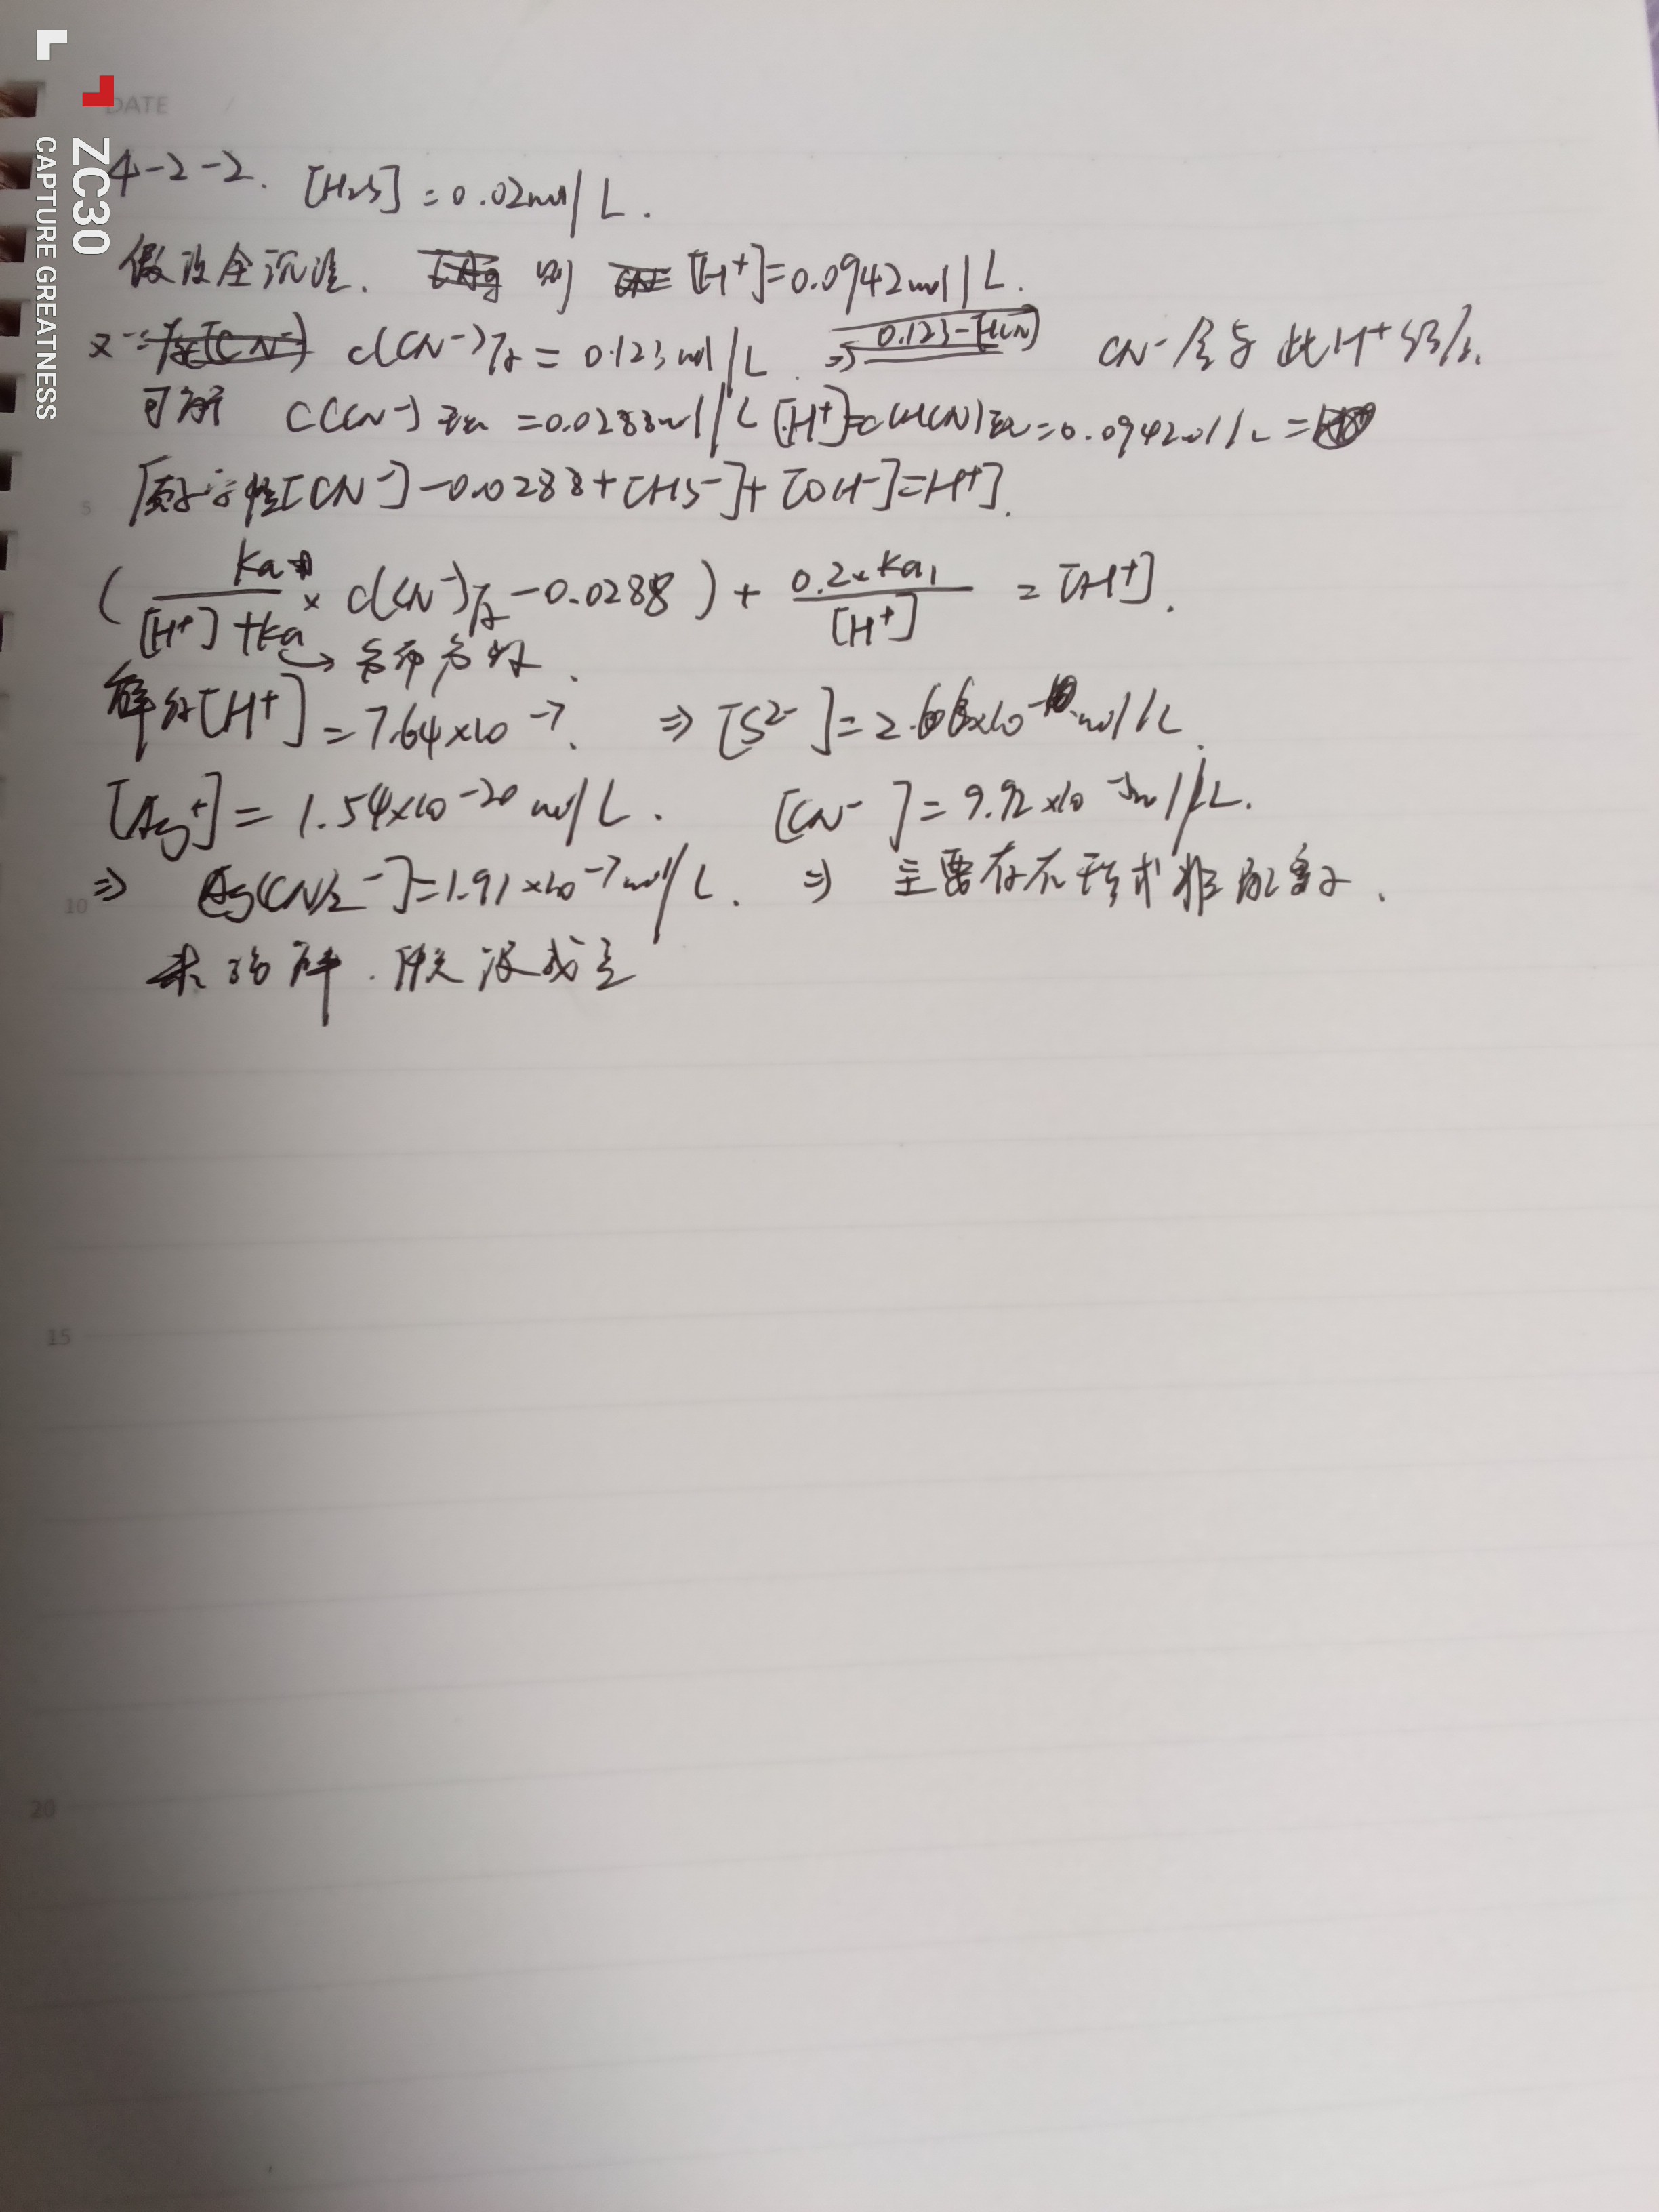 DATE
ZC30
CAPTURE GREATNESS
4-2-2. [H₂S] = 0.02mol/L.
假设全沉淀. 则 [H⁺]=0.0942mol/L.
又 c(CN⁻) = 0.123mol/L ⇒ 0.123-[HCN] CN⁻ 与此H⁺
可解 C(CN⁻) = 0.0288mol/L [H⁺]=c(HCN) = 0.0942mol/L =
[CN⁻]-0.0288+[HS⁻]+[OH⁻]=[H⁺].
5
( Ka / ([H⁺]+Ka) × c(CN⁻) - 0.0288 ) + 0.2×Ka₁ / [H⁺] = [H⁺].
→
解得[H⁺] = 7.64×10⁻⁷. ⇒ [S²⁻] = 2.68×10⁻ mol/L.
[Ag⁺] = 1.54×10⁻²⁰ mol/L. [CN⁻] = 9.92×10⁻ mol/L.
⇒ [Ag(CN)₂⁻]=1.91×10⁻⁷mol/L. ⇒ 主要存在形式
10
假设成立
15
20